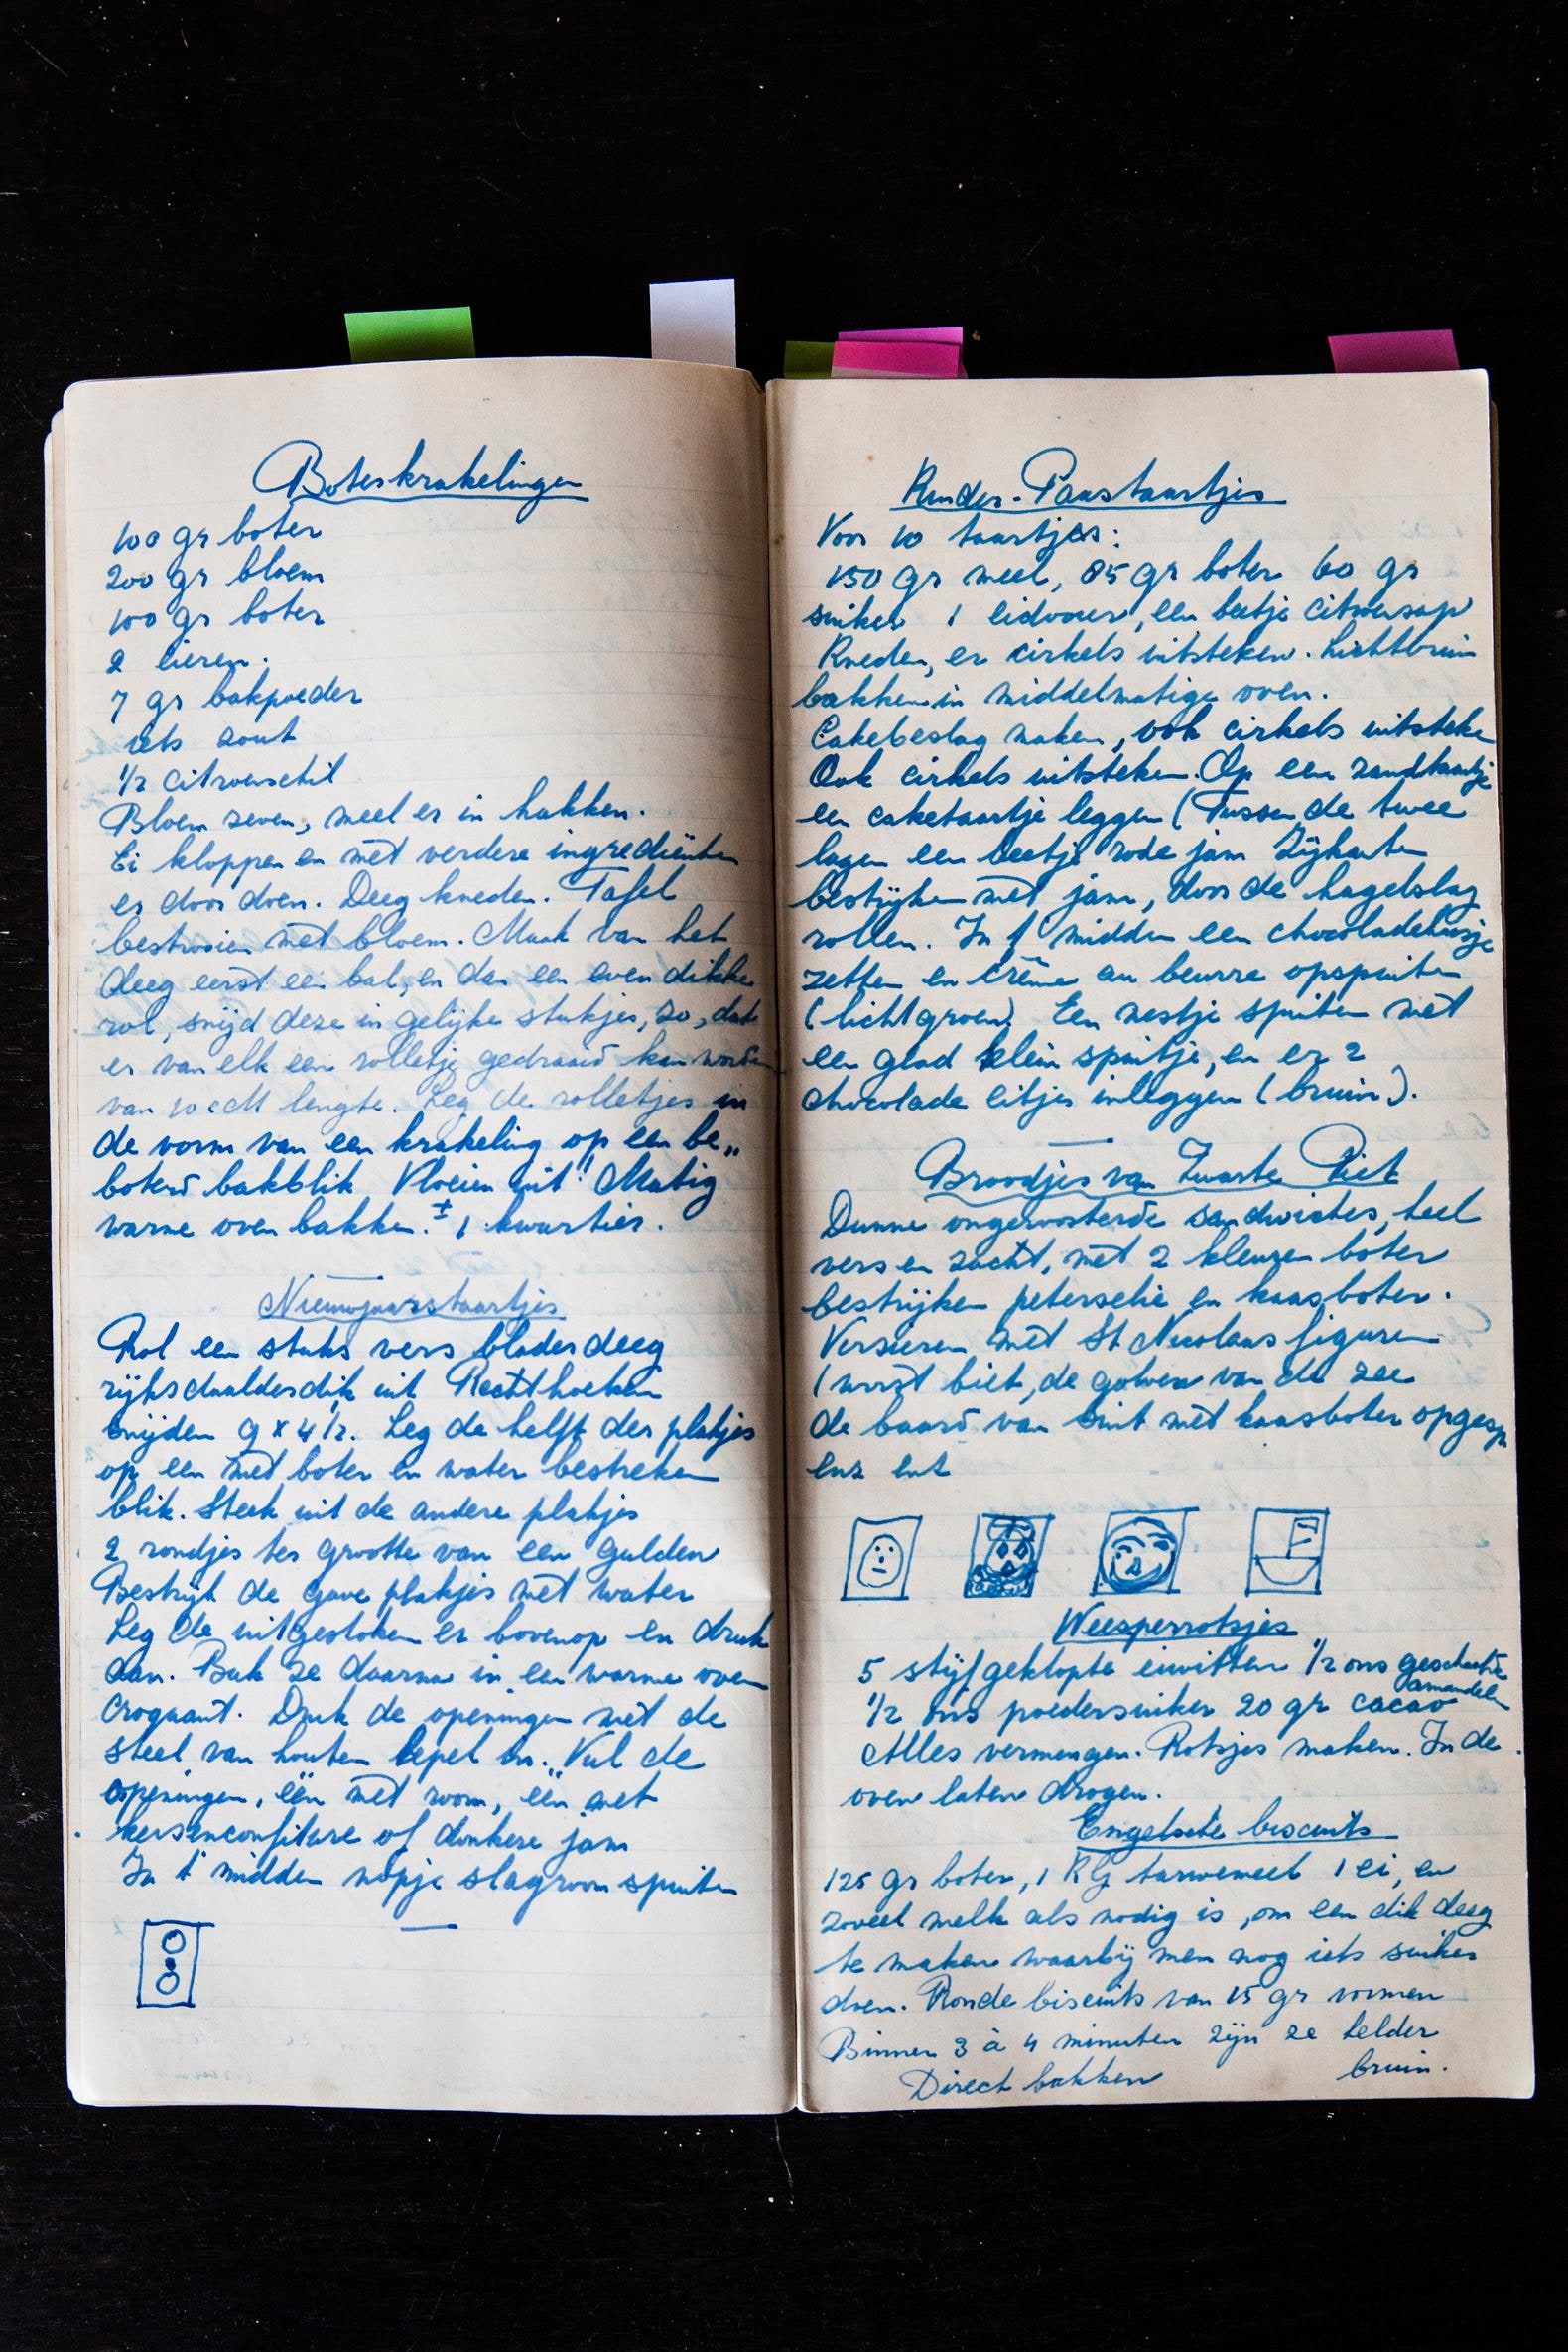 Boterkrakelingen
100 gr boter
200 gr bloem
100 gr boter
2 eieren.
7 gr bakpoeder
iets zout
1/2 citroenschil
Bloem zeven, meel er in hakken.
Ei kloppen en met verdere ingrediënten
er door doen. Deeg kneden. Tafel
bestrooien met bloem. Maak van het
deeg eerst een bal, en dan een even dikke
rol, snijd deze in gelijke stukjes, zo, dat
er van elk een rolletje gedraaid kan worden
van 10 cM lengte. Leg de rolletjes in
de vorm van een krakeling op een be„
boterd bakblik Vloeien uit! Matig
warme oven bakken. ± 1 kwartier.
Nieuwjaarstaartjes
Rol een stuks vers bladerdeeg
rijksdaalderdik uit Rechthoeken
snijden 9 x 4 1/2. Leg de helft der plakjes
op een met boter en water bestreken
blik. Steek uit de andere plakjes
2 rondjes ter grootte van een gulden
Bestrijk de gave plakjes met water
Leg de uitgestoken er bovenop en druk
aan. Bak ze daarna in een warme oven
croquant. Druk de openingen met de
steel van houten lepel in. Vul de
openingen, één met room, één met
kersenconfiture of donkere jam
In 't midden nopje slagroom spuiten
Kinder-Paastaartjes
Voor 10 taartjes:
150 gr meel, 85 gr boter 60 gr
suiker 1 eidooier, een beetje citroensap
Kneden, er cirkels uitsteken. Lichtbruin
bakken in middelmatige oven.
Cakebeslag maken, ook cirkels uitsteke
Ook cirkels uitsteken. Op een zandtaartje
een caketaartje leggen (Tussen de twee
lagen een beetje rode jam Zijkanten
bestrijken met jam, door de hagelslag
rollen. In 't midden een chocoladehuisje
zetten en crême au beurre opspuiten
(lichtgroen) Een nestje spuiten met
een glad klein spuitje, en er 2
chocolade eitjes inleggen (bruin).
Broodjes van Zwarte Piet
Dunne ongeroosterde sandwiches, heel
vers en zacht, met 2 kleuren boter
bestrijken peterselie en kaasboter.
Versieren met St Nicolaas figuren
(worst biet, de golven van de zee
de baard van Sint met kaasboter opgesp
enz enz
Weesperrotsjes
5 stijfgeklopte eiwitten 1/2 ons geschaafde
amandelen
1/2 ons poedersuiker 20 gr cacao
Alles vermengen. Rotsjes maken. In de
oven laten drogen.
Engelsche biscuits
125 gr boter, 1 KG tarwemeel 1 ei, en
zoveel melk als nodig is, om een dik deeg
te maken waarbij men nog iets suiker
doen. Ronde biscuits van 15 gr vormen
Binnen 3 à 4 minuten zijn ze helder
bruin.
Direct bakken